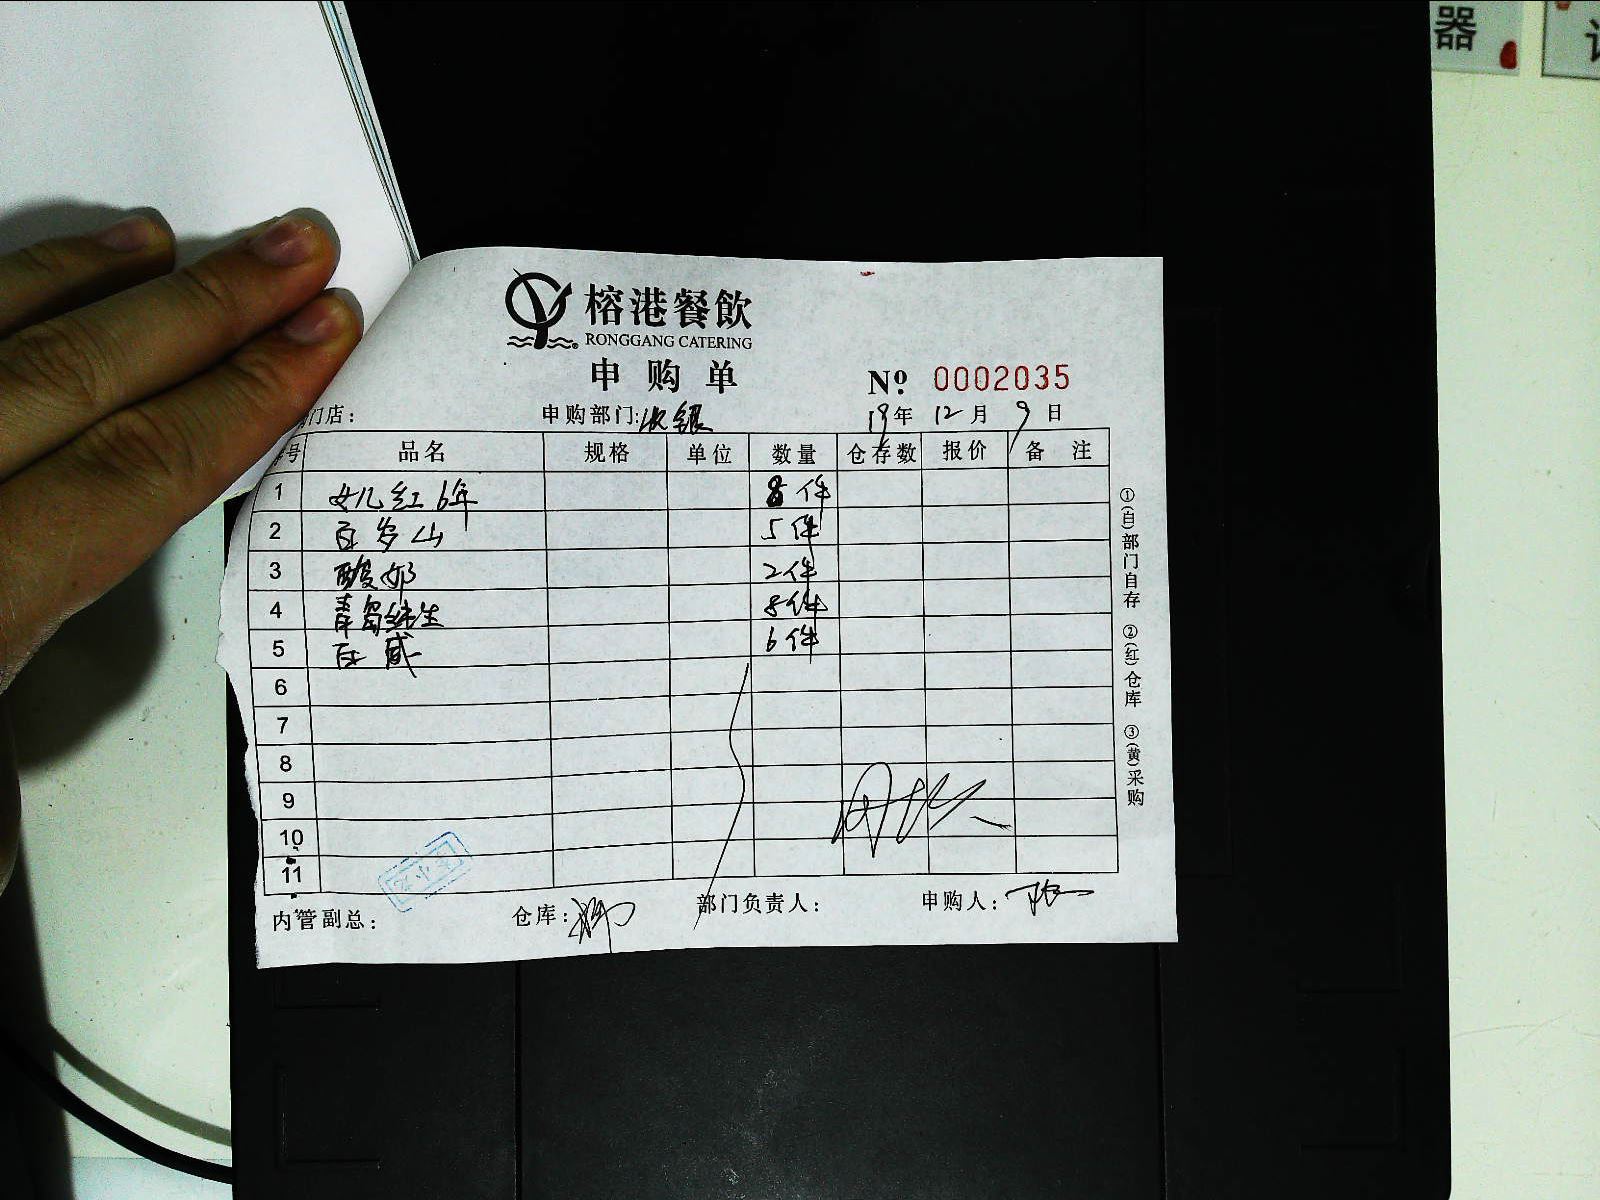 器
榕港餐飲
RONGGANG CATERING
申购单
№ 0002035
门店： 申购部门：收银 19年 12月 9日
号 品名 规格 单位 数量 仓存数 报价 备 注
1 女儿红6年 8件
2 百岁山 5件
3 酸奶 2件
4 青岛纯生 8件
5 百威 6件
6
7
8
9
10
11
内管副总： 仓库： 部门负责人： 申购人：
①(自)部门自存 ②(红)仓库 ③(黄)采购